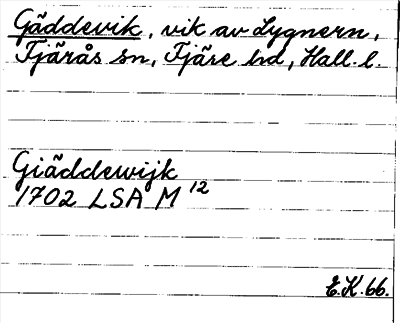 Gäddevik, vik av Lygnern,
Fjärås sn, Fjäre hd, Hall. l.
Giäddewijk
1702 LSA M 12
E.K. 66.